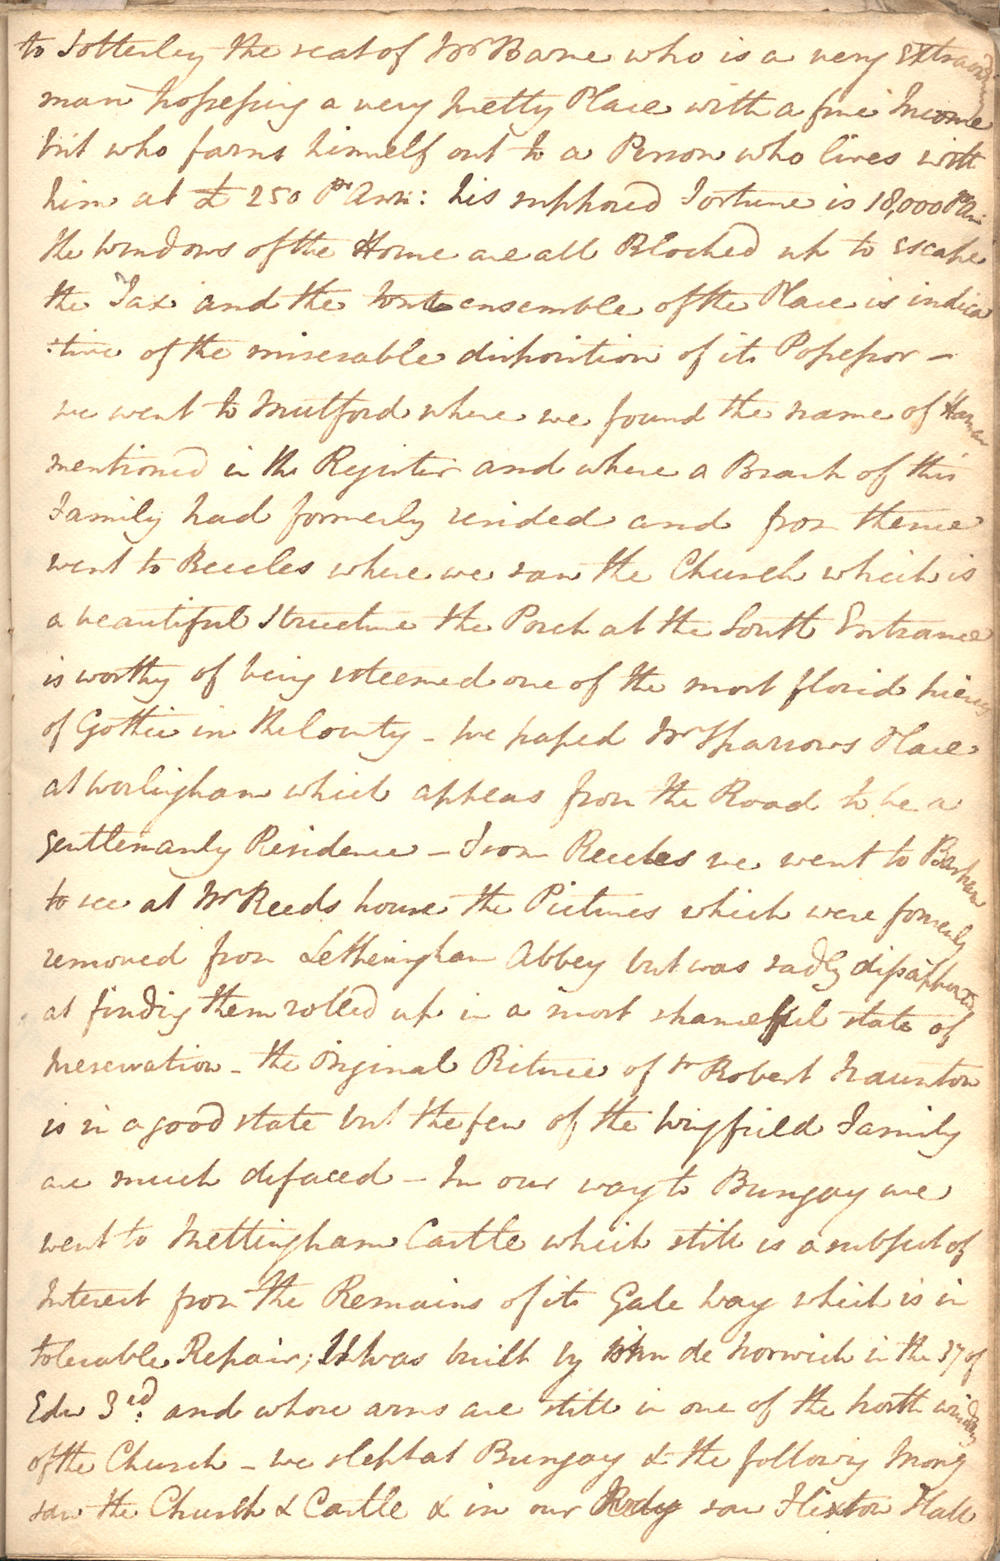 to Sotterley the seat of Mr Barne who is a very Extraord
man possessing a very pretty Place with a fine Income
but who farms himself out to a Person who lives with
him at £ 250 Pr Ann: his supposed Fortune is 18,000 Pr An
the Windows of the House are all Blocked up to Escape
the Tax and the tout ensemble of the Place is indica
:tive of the miserable disposition of its Possessor –
we went to Mutford where we found the name of
mentioned in the Register and where a Branch of this
Family had formerly resided and from thence
went to Beccles where we saw the Church which is
a beautiful Structure the Porch at the South Entrance
is worthy of being esteemed one of the most florid pieces
of Gothic in the County – We passed Mr Sparrows Place
at Worlingham which appears from the Road to be a
Gentlemanly Residence – From Beccles we went to Barsham
to see at Mr Reeds house the Pictures which were formerly
removed from Letheringham Abbey but was sadly disappointed
at finding them rolled up in a most shameful state of
Preservation – the Original Picture of Sr Robert Naunton
is in a good state but the few of the Wingfield Family
are much defaced – In our way to Bungay we
went to Mettingham Castle which still is a subject of
Interest from the Remains of its Gate Way which is in
tolerable Repair; It was built by John de Norwich in the 37 of
Edw 3rd. and whose arms are still in one of the North windows
of the Church – we slept at Bungay & the following Morng
saw the Church & Castle & in our saw Flixton Hall